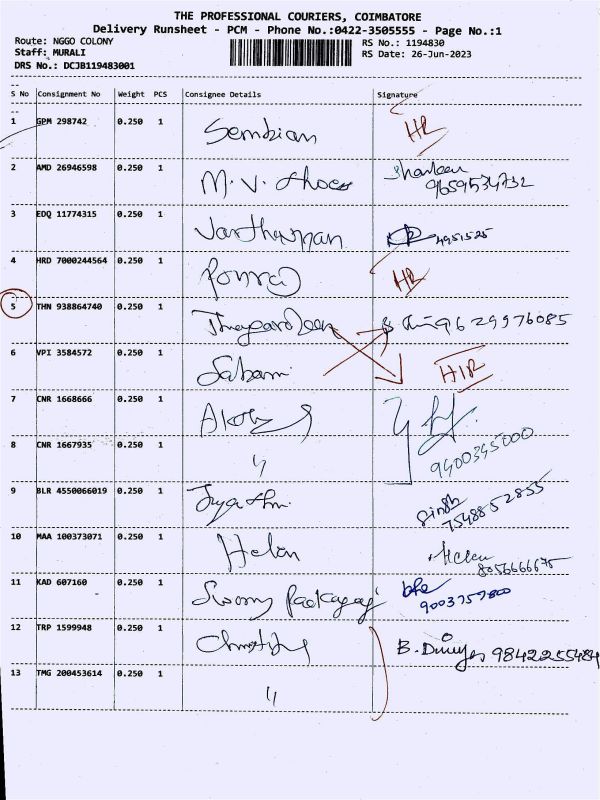 THE PROFESSIONAL COURIERS, COIMBATORE
Delivery Runsheet - PCM - Phone No.:0422-3505555 - Page No.:1
Route: NGGO COLONY RS No.: 1194830
Staff: MURALI RS Date: 26-Jun-2023
DRS No.: DCJB119483001
S No Consignment No Weight PCS Consignee Details Signature
1 GPM 298742 0.250 1 Sembian HR
2 AMD 26946598 0.250 1 M. V. Shoes 9659534732
3 EDQ 11774315 0.250 1 Varthaman 4951525
4 HRD 7000244564 0.250 1 Ponraj HR
5 THN 938864740 0.250 1 9629976085
6 VPI 3584572 0.250 1 Sabari HIR
7 CNR 1668666 0.250 1
8 CNR 1667935 0.250 1 " 9400345000
9 BLR 4550066019 0.250 1 Singh 7548852855
10 MAA 100373071 0.250 1 Helen Helen 8056666675
11 KAD 607160 0.250 1 Swomy Packaging 9003757800
12 TRP 1599948 0.250 1 B. 9842255484
13 TMG 200453614 0.250 1 "